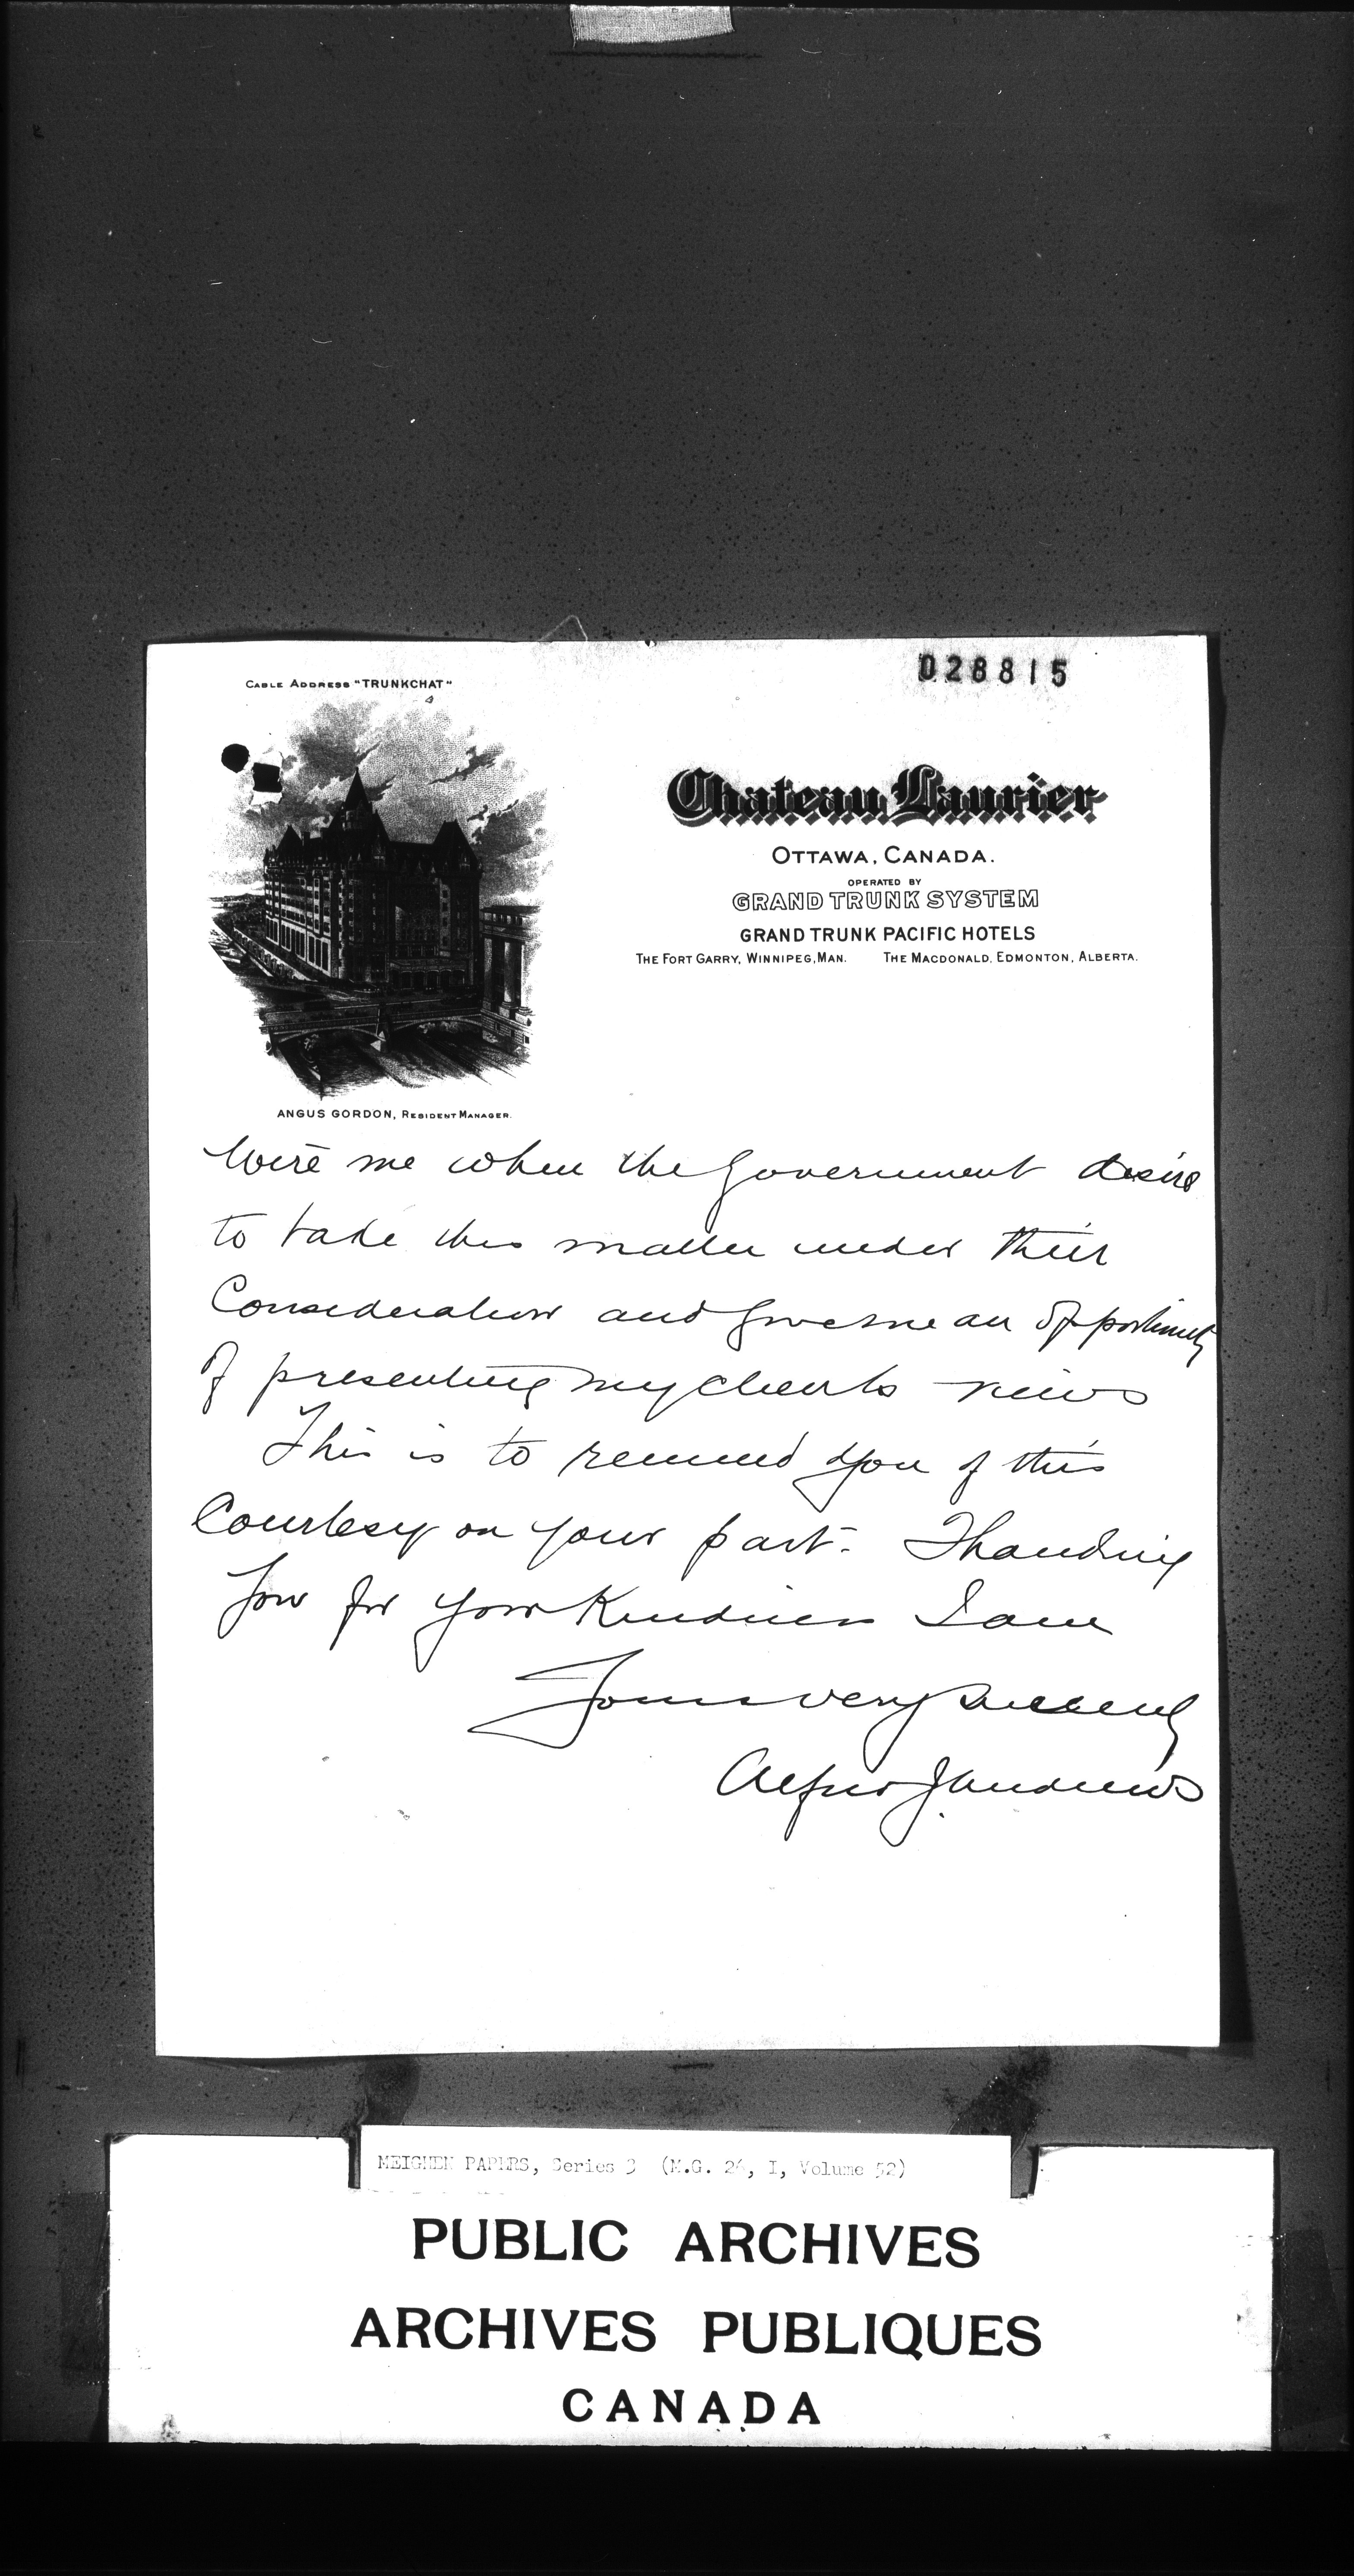 028815
CABLE ADDRESS "TRUNKCHAT"
Chateau Laurier
OTTAWA, CANADA.
OPERATED BY
GRAND TRUNK SYSTEM
GRAND TRUNK PACIFIC HOTELS
THE FORT GARRY, WINNIPEG, MAN. THE MACDONALD, EDMONTON, ALBERTA.
ANGUS GORDON, RESIDENT MANAGER.
Wire me when the Government desire
to take this matter under their
Consideration and give me an opportunity
of presenting my clients views
This is to remind you of this
Courtesy on your part. Thanking
you for your Kindness I am
Yours very sincerely
Alfred J Andrews
MEIGHEN PAPERS, Series 3 (M.G. 26, I, Volume 52)
PUBLIC ARCHIVES
ARCHIVES PUBLIQUES
CANADA